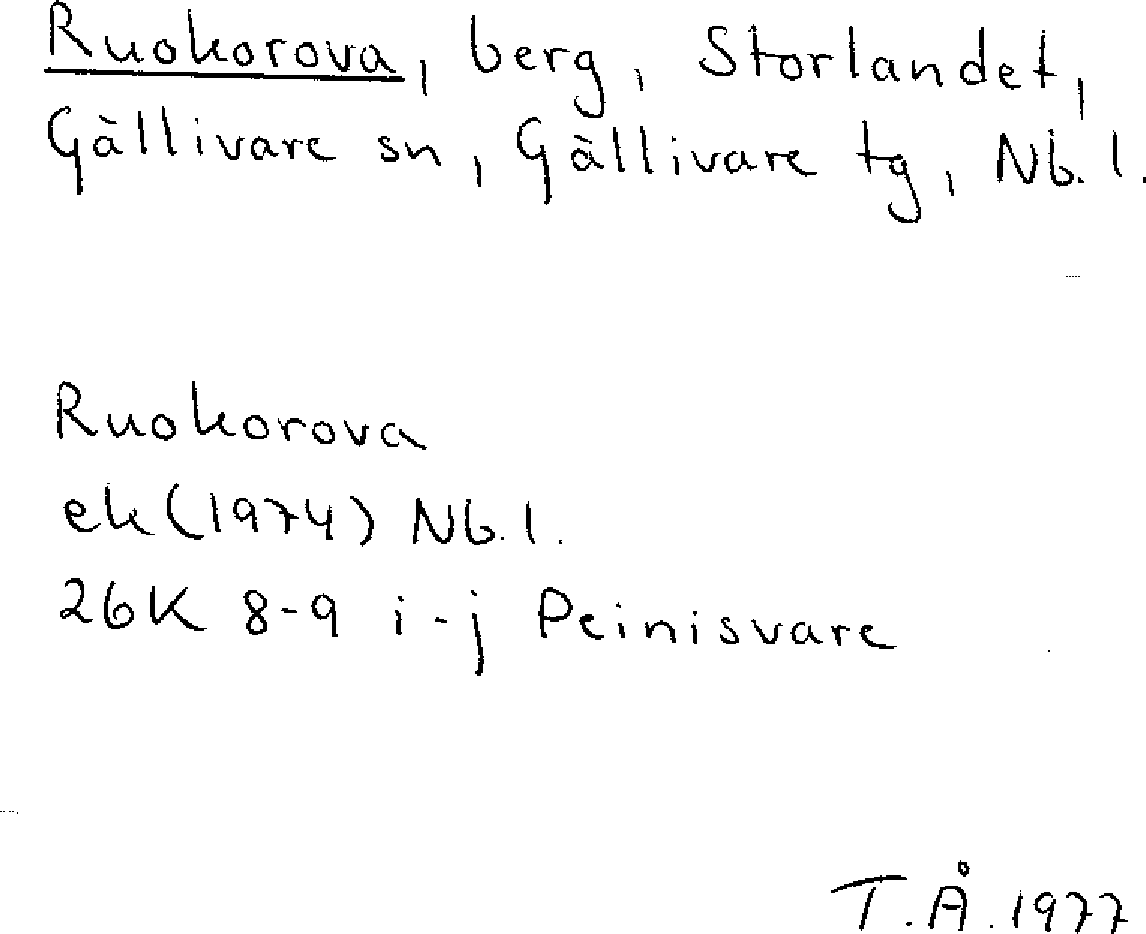 Ruokorova, berg, Storlandet,
Gällivare sn, Gällivare tg, Nb. l.
Ruokorova
ek (1974) Nb. l.
26K 8-9 i-j Peinisvare
T. Å. 1977